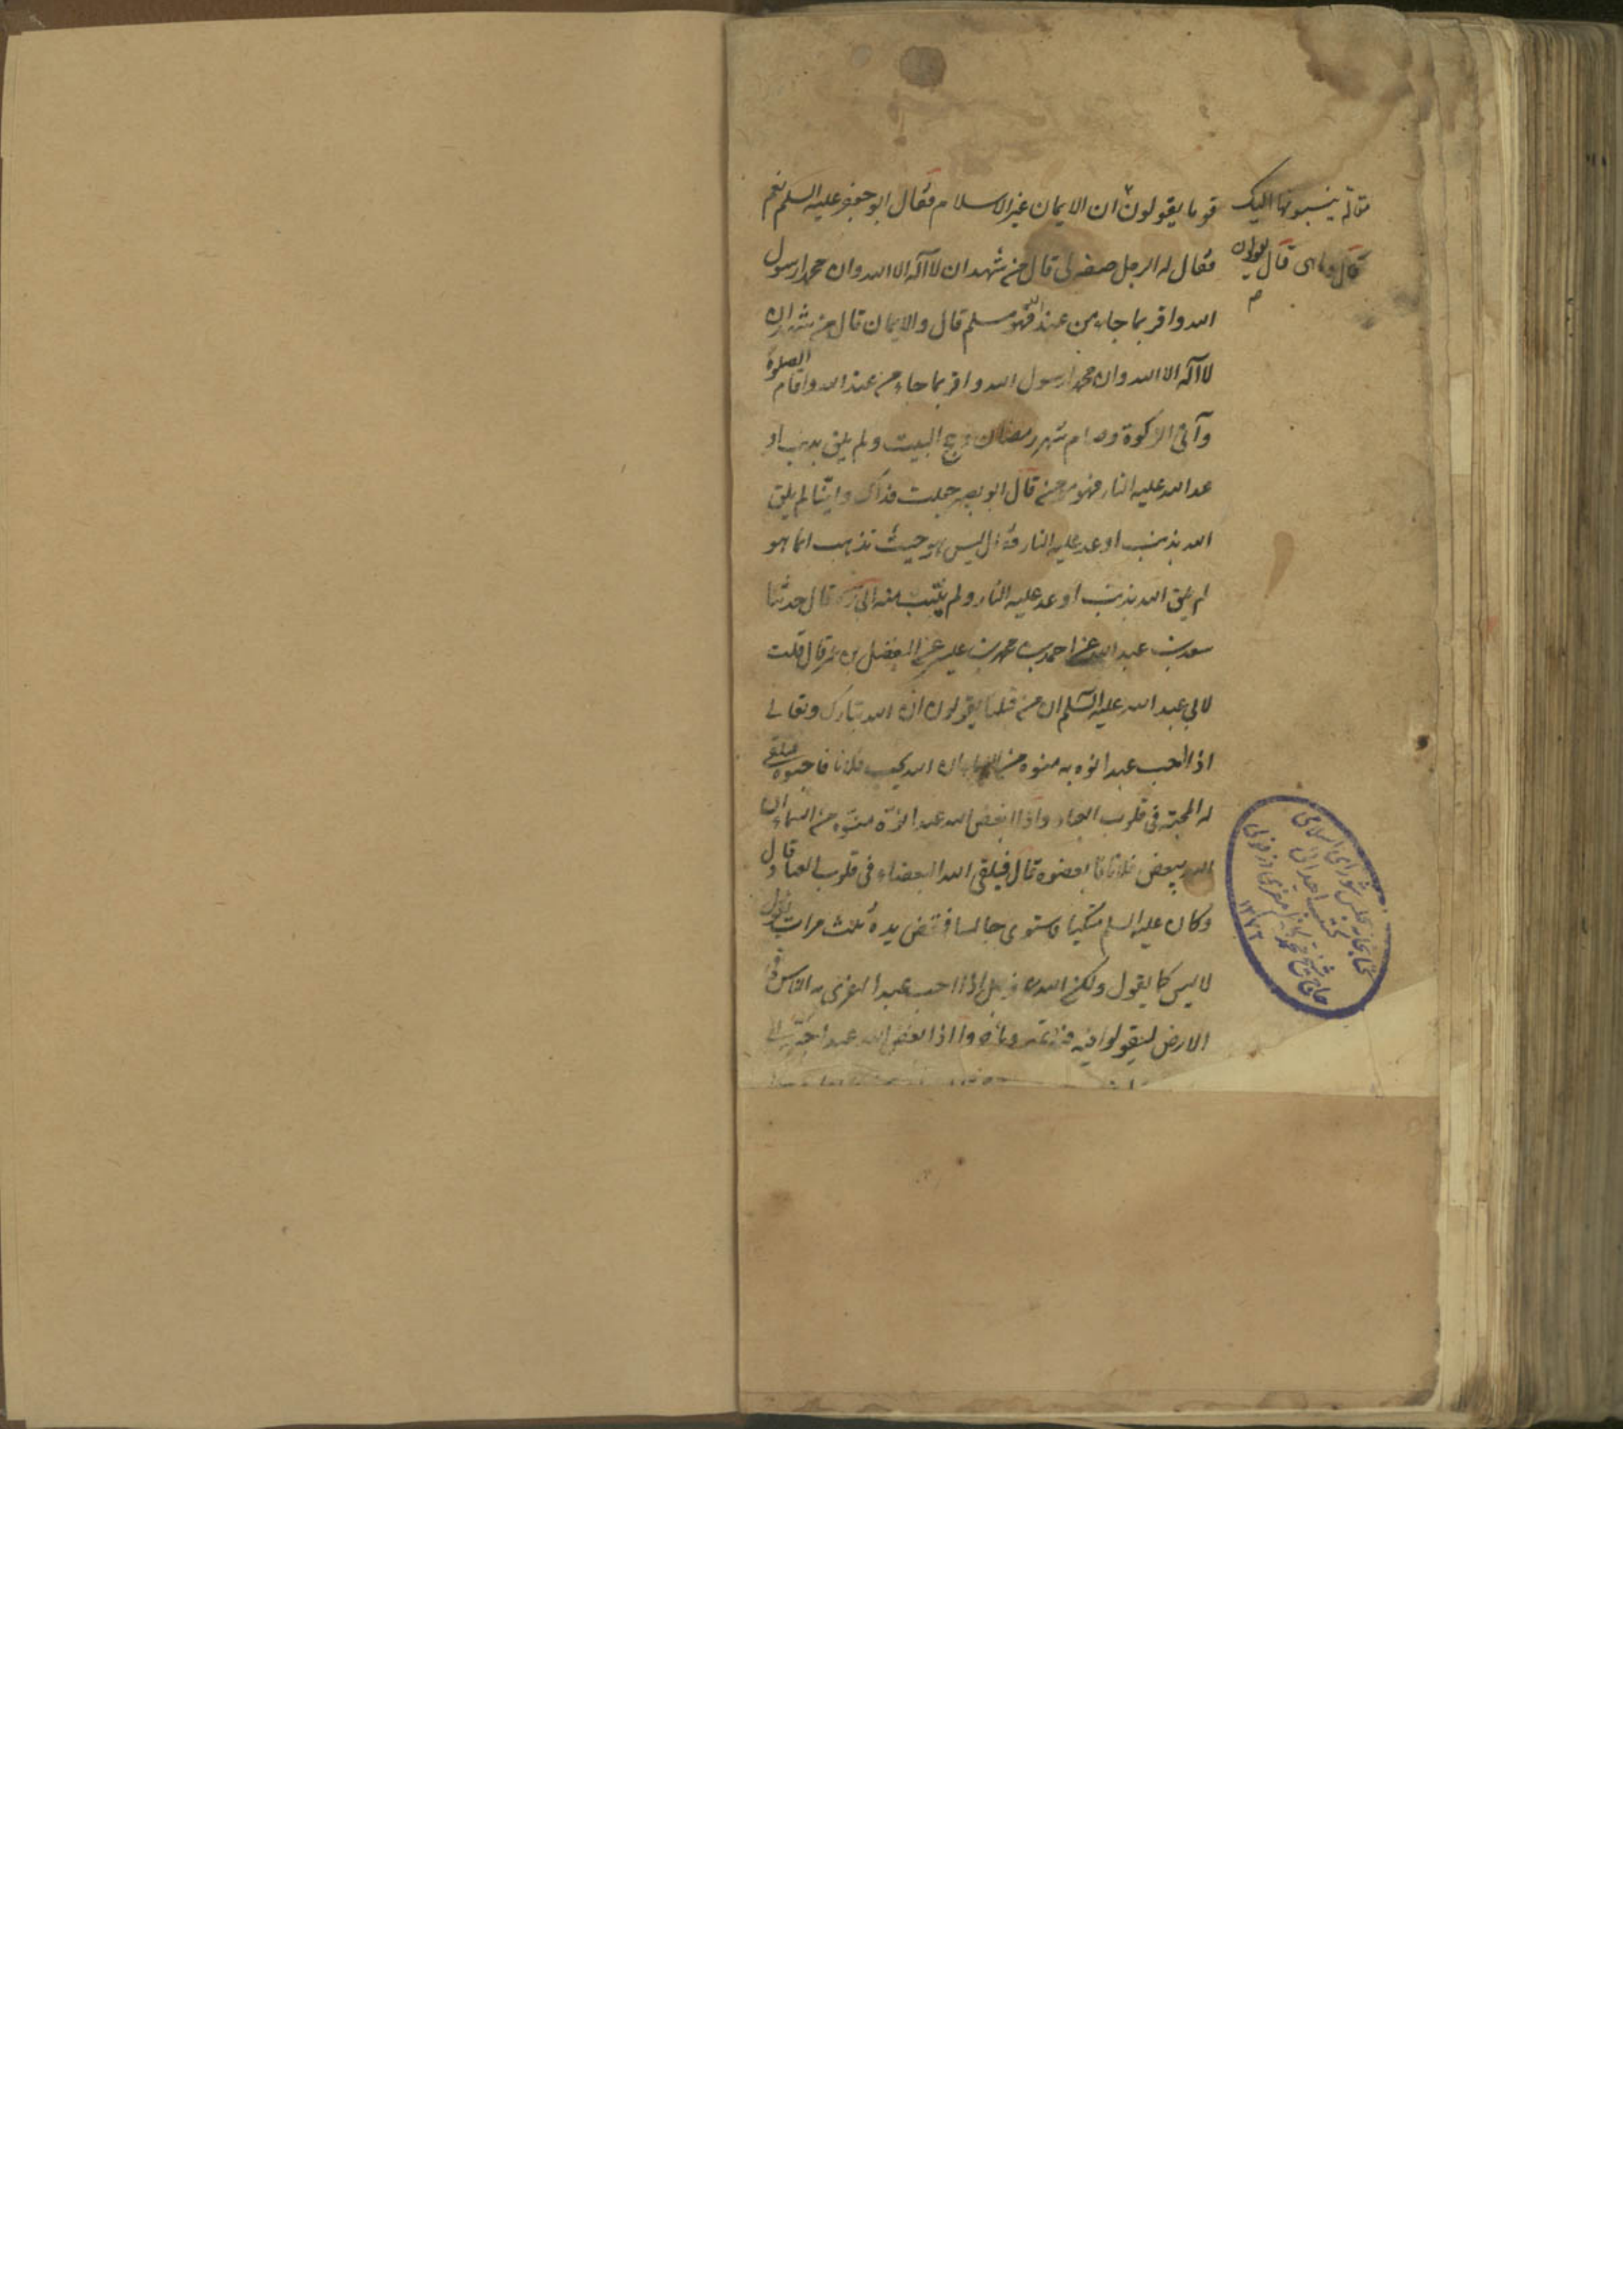 قوما يقولون ان الايمان غير الاسلام فقال ابو جعفر عليه السلم نعم
فقال له الرجل صفه لى قال من شهد ان لا اله الا الله وان محمدا رسول
الله واقر بما جاء من عند الله فهو مسلم قال والايمان قال من شهد ان
لا اله الا الله وان محمدا رسول الله واقر بما جاء من عند الله واقام الصلوة
وآتى الزكوة وصام شهر رمضان وحج البيت ولم يلق بذنب او
عد الله عليه النار فهو مومن قال ابو بصير جعلت فداك واينا لم يلق
الله بذنب اوعد عليه النار فقال ليس هو حيث تذهب انما هو
لم يلق الله بذنب اوعد عليه النار ولم يتب منه قال حدثنا
سعد بن عبد الله عن احمد بن محمد بن عيسى عن المفضل بن عمر قال قلت
لابى عبد الله عليه السلم ان من قبلنا يقولون ان الله تبارك وتعالى
اذا احب عبدا نوه به منوه من السماء ان الله يحب فلانا فاحبوه فيلقى
له المحبة فى قلوب العباد واذا ابغض الله عبدا نوه منوه من السماء ان
الله يبغض فلانا فابغضوه قال فيلقى الله البغضاء فى قلوب العباد قال
وكان عليه السلم متكيا فاستوى جالسا فنفض يده ثلث مرات يقول
لا ليس كما يقول ولكن الله عز وجل اذا احب عبدا اغرى به الناس فى
الارض ليقولوا فيه واذا ابغض الله عبدا حببه الى
مقالة ينسبونها اليك
قال وما هى قال يقولون
م
كتابخانه مجلس شوراى اسلامى
كتب اهدائى
حاج شيخ محمد معزى دزفولى
۱۳۷۶